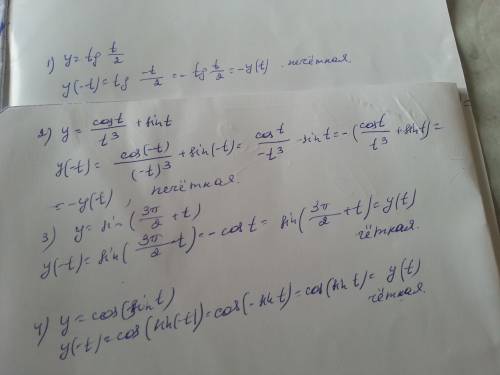 1) y = tg t/2
y(-t) = tg -t/2 = - tg t/2 = -y(t) . нечётная.
2) y = cost/t³ + sint
y(-t) = cos(-t)/(-t)³ + sin(-t) = cost/-t³ - sint = -(cost/t³ + sint) =
= -y(t) , нечётная.
3) y = sin(3π/2 + t)
y(-t) = sin(3π/2 - t) = - cost = sin(3π/2 + t) = y(t)
чётная.
4) y = cos(sint)
y(-t) = cos(sin(-t)) = cos(-sint) = cos(sint) = y(t)
чётная.